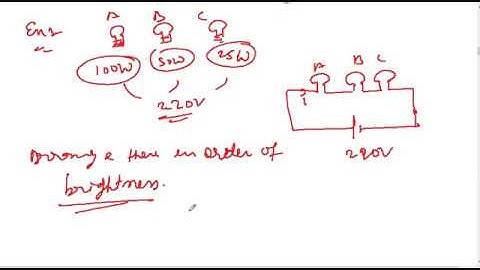 Ex1 A B C
100W 50W 25W
220V
A B C
i
220V
Arrange them in order of
brightness.